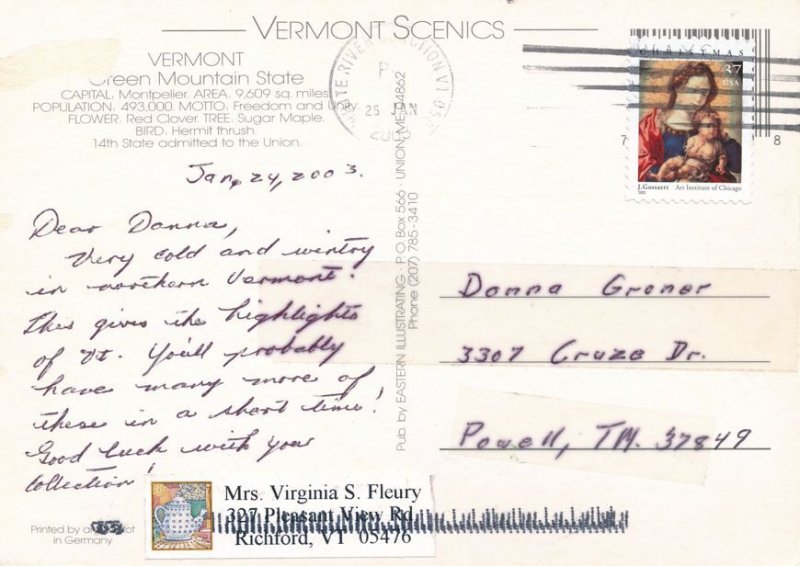 VERMONT SCENICS
VERMONT
Green Mountain State
CAPITAL, Montpelier. AREA, 9,609 sq. miles
POPULATION, 493,000. MOTTO, Freedom and Unity
FLOWER, Red Clover. TREE, Sugar Maple
BIRD, Hermit thrush.
14th State admitted to the Union.
Jan, 24, 2003.
Dear Donna,
Very cold and wintry
in northern Vermont.
This gives the highlights
of Vt. You'll probably
have many more of
these in a short time!
Good luck with your
collection!
Printed by
in Germany
Mrs. Virginia S. Fleury
327 Pleasant View Rd
Richford, VT 05476
Pub. by EASTERN ILLUSTRATING · P.O. Box 566 · UNION, ME 04862
Phone (207) 785-3410
WHITE RIVER JUNCTION VT
25 JAN
CHRISTMAS
37
USA
J. Gossaert Art Institute of Chicago
2002
7
8
Donna Groner
3307 Cruze Dr.
Powell, TN. 37849